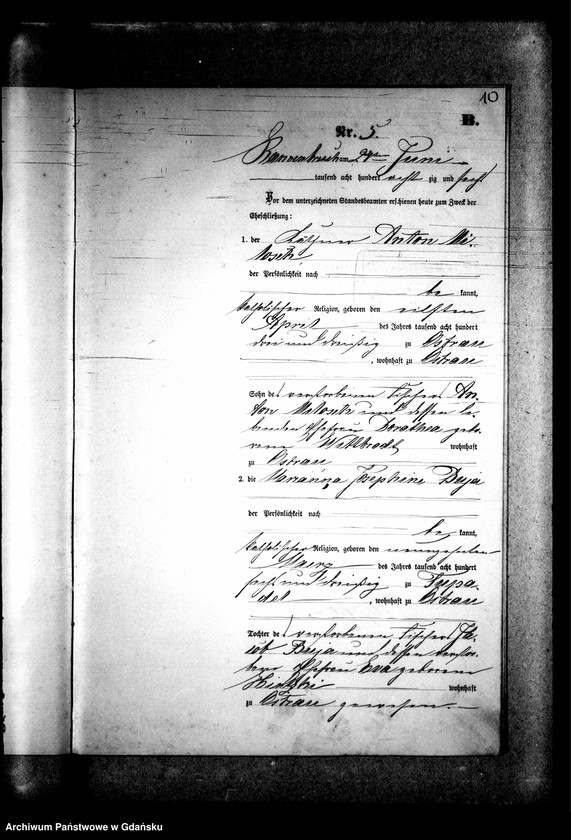 10
B.
Nr. 5.
am 24ten Juni
tausend acht hundert acht zig und sechs
Vor dem unterzeichneten Standesbeamten erschienen heute zum Zweck der
Eheschließung:
1. der Käthner Anton Mi-
der Persönlichkeit nach
be kannt,
katholischer Religion, geboren den eilften
April des Jahres tausend acht hundert
drei und dreißig zu Ostrau
, wohnhaft zu Ostrau
Sohn des verstorbenen Fischer An-
ton und dessen le-
benden Ehefrau Dorothea gebo-
renen wohnhaft
zu Ostrau
2. die Marianna Josephine Buja
der Persönlichkeit nach
be kannt,
katholischer Religion, geboren den neunzehnten
Maerz des Jahres tausend acht hundert
sechs und dreißig zu Tupa-
del , wohnhaft zu Ostrau
Tochter des verstorbenen Fischer Ja-
cob Buja und dessen verstor-
bene Ehefrau Eva geborenen
wohnhaft
zu Ostrau gewesen.
Archiwum Państwowe w Gdańsku